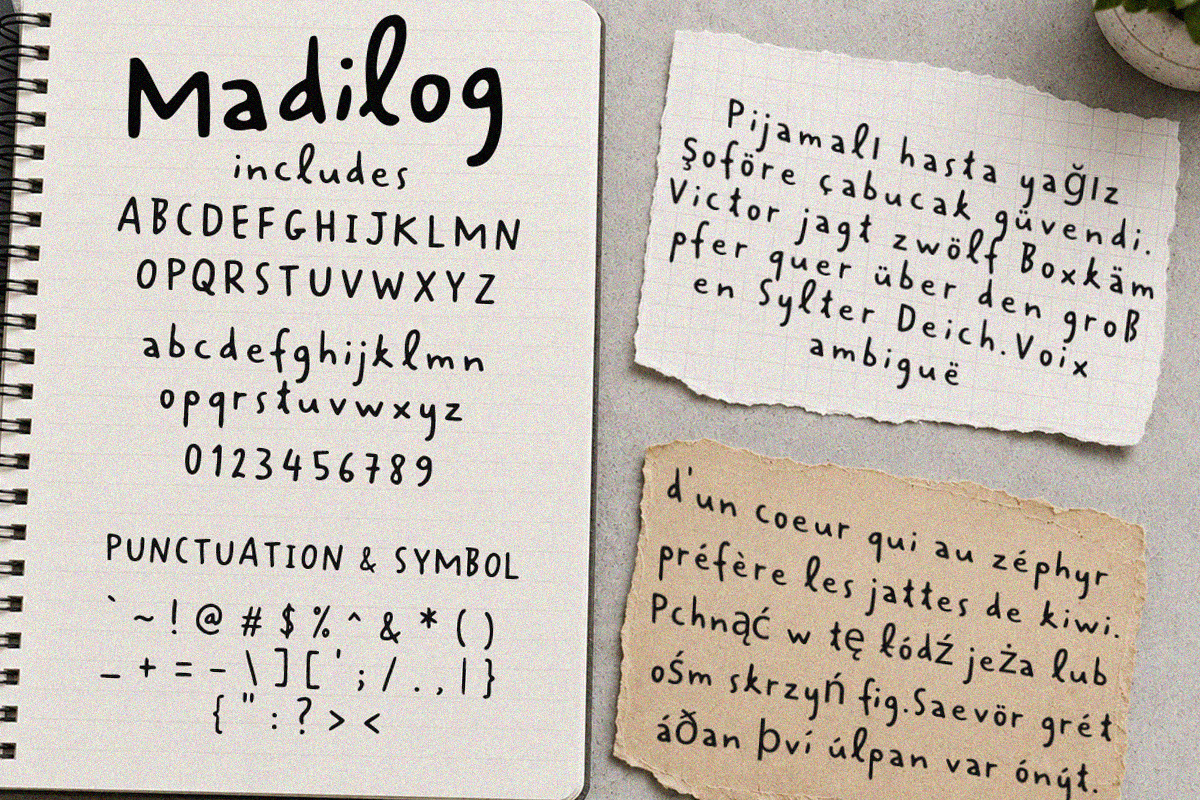 Madilog
includes
ABCDEFGHIJKLMN
OPQRSTUVWXYZ
abcdefghijklmn
opqrstuvwxyz
0123456789
PUNCTUATION & SYMBOL
` ~ ! @ # $ % ^ & * ( )
_ + = - \ ] [ ' ; / . , | }
{ " : ? > <
Pijamalı hasta yağız
şoföre çabucak güvendi.
Victor jagt zwölf Boxkäm
pfer quer über den groß
en Sylter Deich.Voix
ambiguë
d'un coeur qui au zéphyr
préfère les jattes de kiwi.
Pchnąć w tę łódź jeża lub
ośm skrzyń fig.Saevör grét
áðan því úlpan var ónýt.